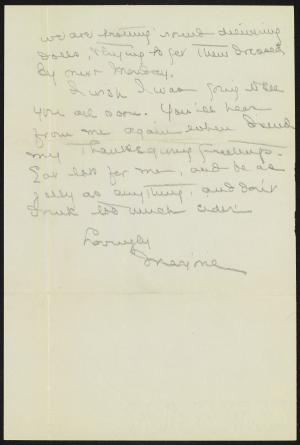 we are trotting 'round delivering
dolls, trying to get them dressed
by next Monday.
I wish I was going to see
you all soon. You'll hear
from me again when I send
my Thanksgiving greetings.
Eat lots for me, and be as
jolly as anything, and don't
drink too much cider
Lovingly
Maxine